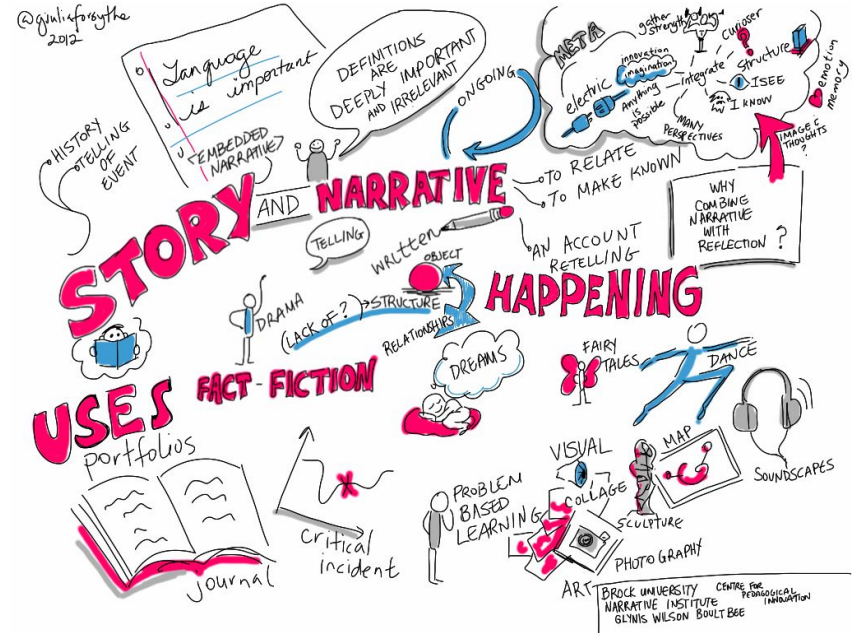 @giuliaforsythe
2012
Language
is important
<EMBEDDED
NARRATIVE>
HISTORY
TELLING
OF
EVENT
DEFINITIONS
ARE
DEEPLY IMPORTANT
AND IRRELEVANT
ONGOING
META
gather
strength
curioser
innovation
imagination
electric
Anything
is
possible
integrate
structure
I SEE
I KNOW
MANY
PERSPECTIVES
emotion
memory
IMAGE &
THOUGHTS
?
STORY AND NARRATIVE
TO RELATE
TO MAKE KNOWN
AN ACCOUNT
RETELLING
WHY
COMBINE
NARRATIVE
WITH
REFLECTION ?
TELLING
written
OBJECT
HAPPENING
DRAMA
(LACK OF?) → STRUCTURE
RELATIONSHIPS
FACT - FICTION
DREAMS
FAIRY
TALES
DANCE
SOUNDSCAPES
USES
portfolios
journal
critical
incident
PROBLEM
BASED
LEARNING
VISUAL
COLLAGE
MAP
SCULPTURE
PHOTOGRAPHY
ART
BROCK UNIVERSITY CENTRE FOR
PEDAGOGICAL
INNOVATION
NARRATIVE INSTITUTE
GLYNIS WILSON BOULTBEE